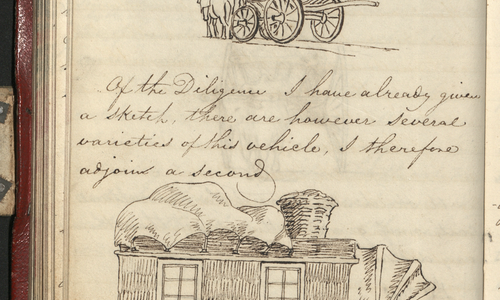 Of the Diligence I have already given
a sketch, there are however several
varieties of this vehicle, I therefore
adjoin a second